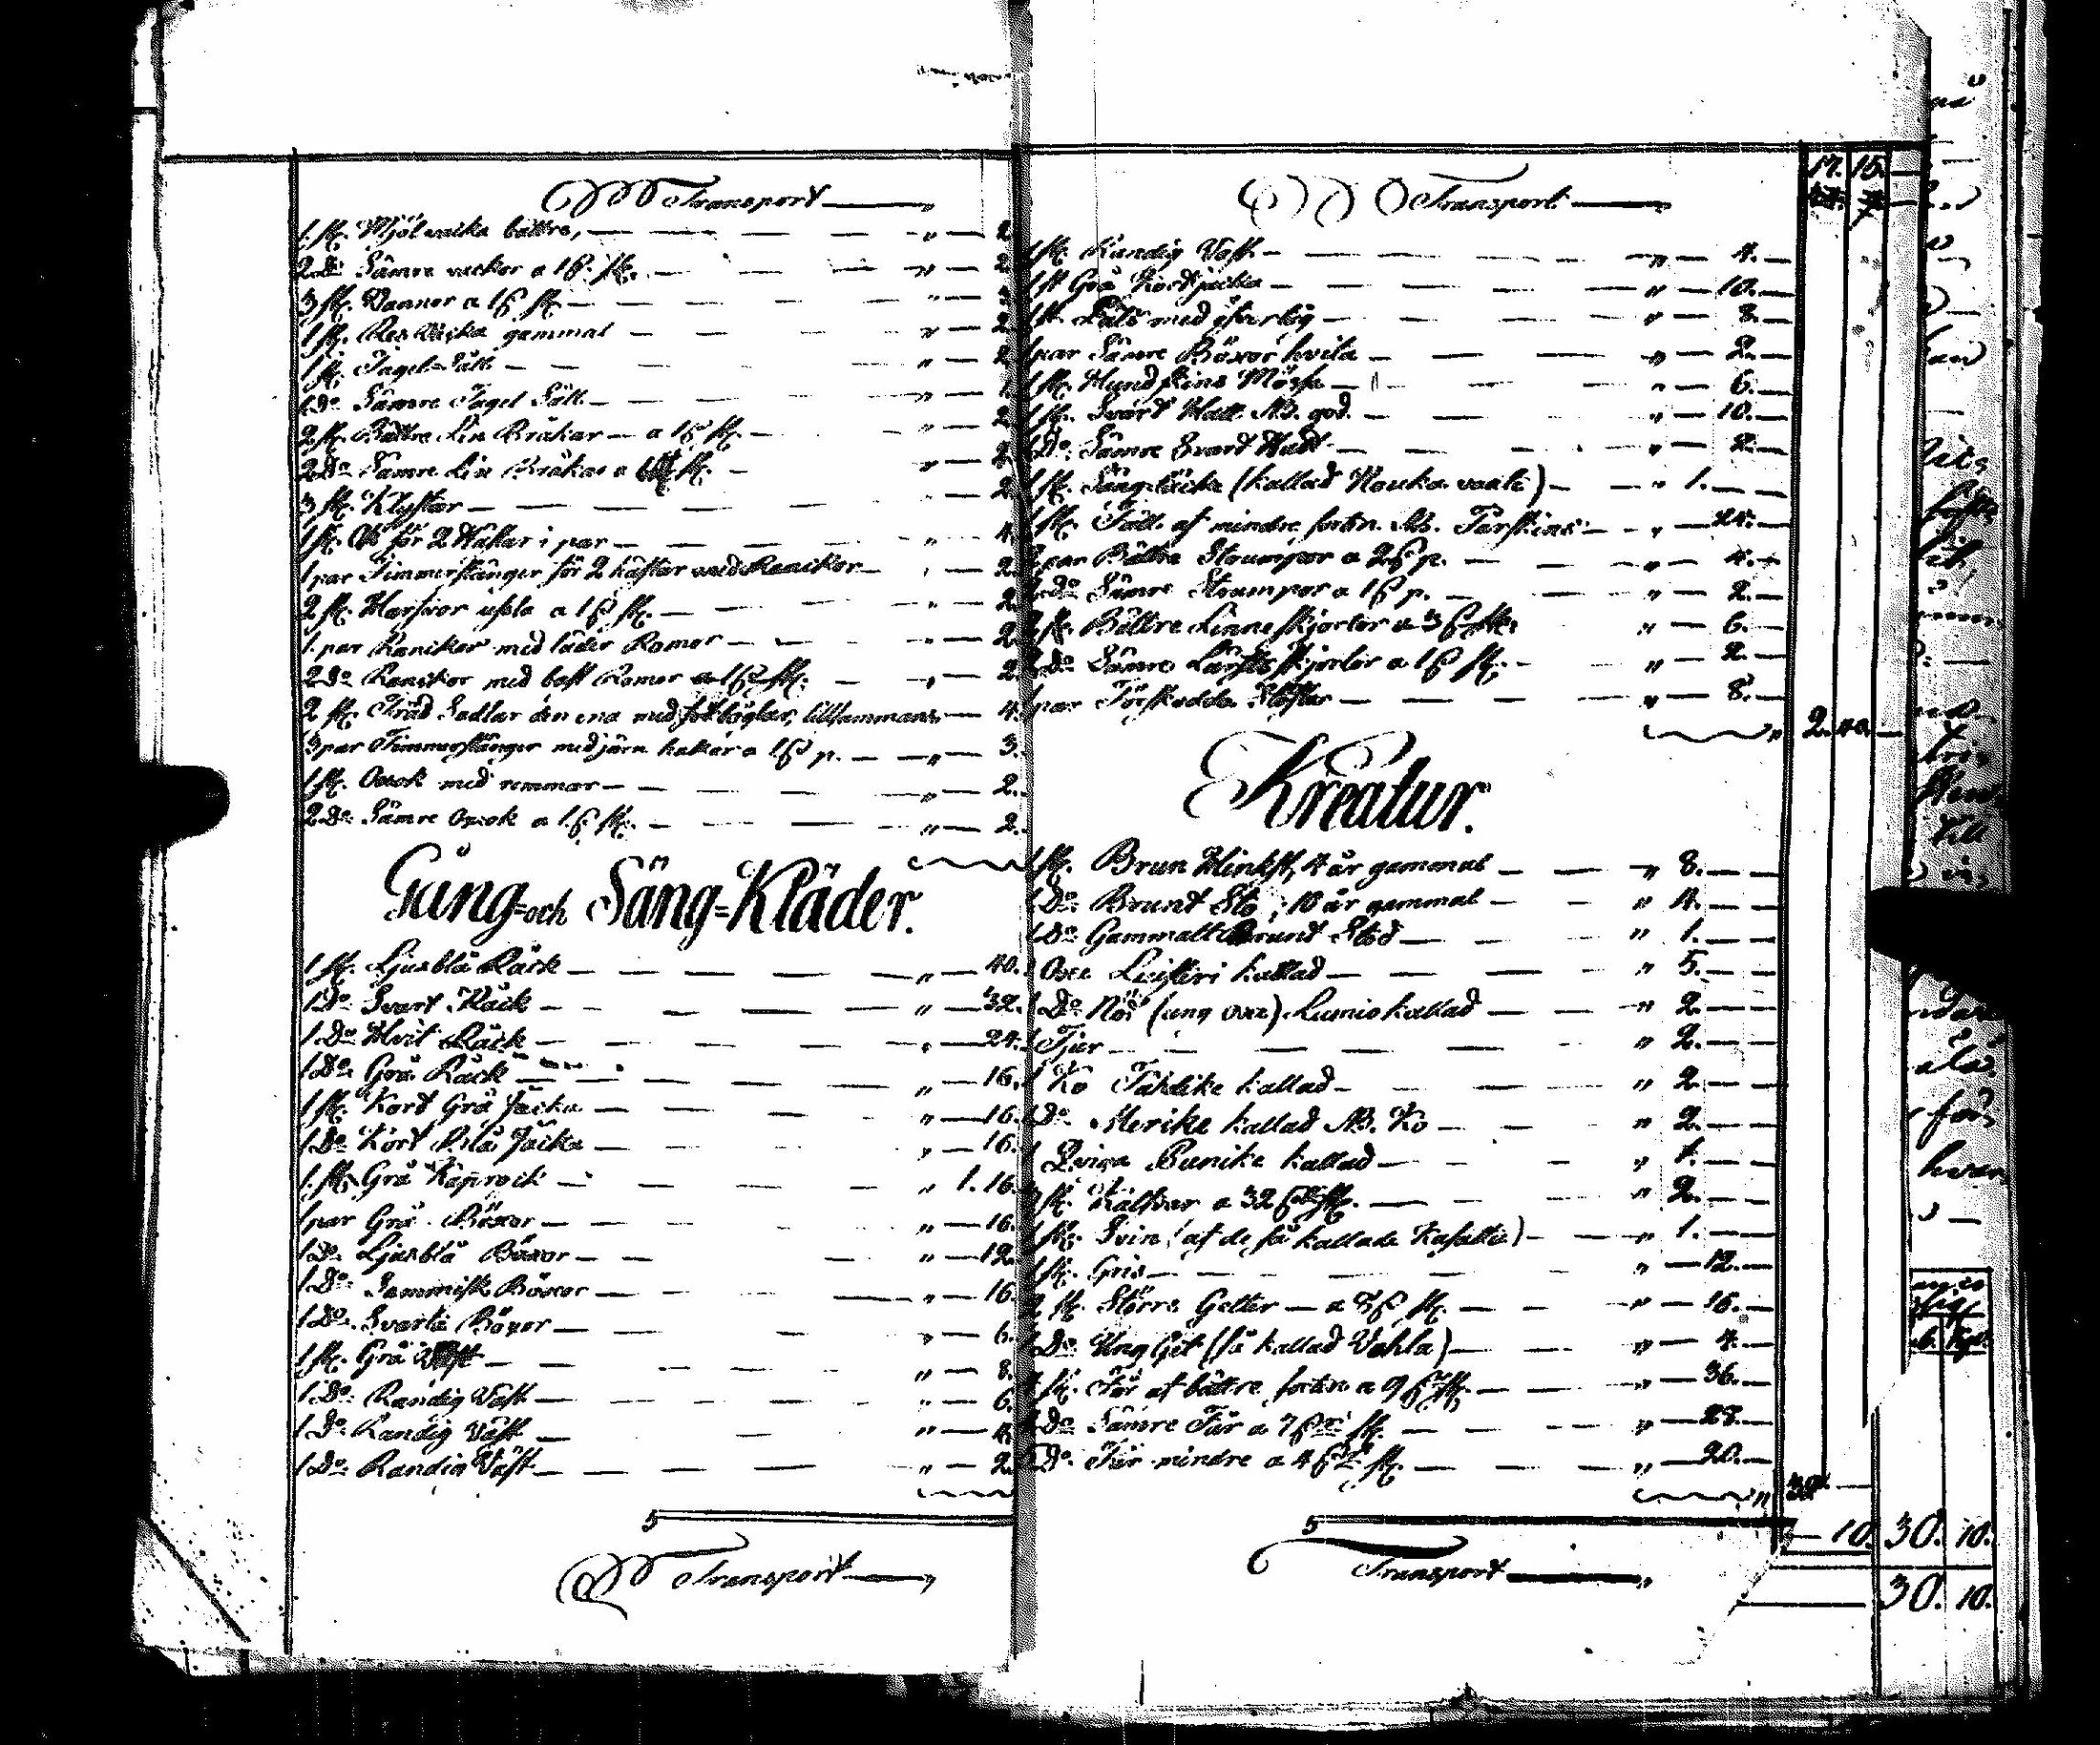 Transport — „
1 st. Mjöl vacka bättre, — „ — 2
2 Do Sämre vackor a 1 ß. st. — „ — 2.
3 st. Vannor a 1 ß st — „ — 3
1 st. Res Väska gammal — „ — 2.
1 st. Tagel-Såll — „ — 2
1 Do Sämre Tagel Såll — „ — 1.
2 st. Bättre Lin Bråkar — a 1 ß st. — „ — 2
2 Do Sämre Lin Bråkor a st. — „ — 2
3 st. — 2.
1 st. Ok för 2 i par — „ — 4.
1 par Timmerstänger för 2 hästar med Rankor — „ — 2.
2 st. a 1 ß st. — „ — 2
1. par Rankor med läder Romor — „ — 2
2 Do Rankor med bast Romor a 1 ß st. — „ — 2.
2 st. Träd Sadlar den ena med fotböglar, tillsammans — 4.
3 par Timmerstänger med järn hakar a 1 ß p. — „ — 3.
1 st. Oxok med remmar — „ — 2.
2 Do Sämre Oxok a 1 ß st. — „ — 2.
Gång- och Säng-Kläder.
1 st. Ljusblå Råck — „ — 40.
1 Do Svart Råck — „ — 32.
1 Do Hvit Råck — „ — 24.
1 Do Grå Råck — „ — 16.
1 st. Kort Grå Jacka — „ — 16.
1 Do Kort Blå Jacka — „ — 16.
1. st. Grå Kaprock — „ 1. 16.
1 par Grå Böxor — „ — 16.
1 Do Ljusblå Böxor — „ — 12.
1 Do Sammisk Böxor — „ — 16.
1 Do Svarta Böxor — „ — 6.
1 st. Grå Väst — „ — 8.
1 Do Randig Väst — „ — 6.
1 Do Randig Väst — „ — 4.
1 Do Randig Väst — „ — 2.
Transport — „
17. 15. —
Transport — „
1 st. Randig Väst — „ — 4. —
1 st Grå Kortjacka — „ — 10. —
1 st. med öfverlig — „ — 8. —
1 par Sämre Böxor hvita — „ — 2. —
1 st. Hundskins Mössa — „ — 6. —
1 st. Svart Hatt NB. god. — „ — 10. —
1 Do Sämre Svart Hatt — „ — 2. —
1 st. Sängtäcke (kallad Nouka vaate) — „ 1. —
1 st. Fäll af mindre sorten NB. Fårskins — „ — 24. —
2 par Bättre Strumpor a 2 ß p. — „ — 4. —
2 Do Sämre Strumpor a 1 ß p. — „ — 2. —
2 st. Bättre Linne skjortor a 3 ß st. — „ — 6. —
2 Do Sämre Lärfts skjortor a 1 ß st. — „ — 2. —
1 par Förskodda Stöflar — „ — 8. —
„ 2. 40. —
Kreatur.
1 st. Brun Hinkst, 4 år gammal — „ 8. —
1 Do Brunt Sto, 10 år gammal — „ 4. —
1 Do Gammalt Brunt Stod — „ 1. —
1 Oxe kallad — „ 5. —
1 Do Nöt (ung oxe) Lumio kallad — „ 2. —
1 Tjur — „ 2. —
1 Ko Tähdike kallad — „ 2. —
1 Do Merike kallad NB. Ko — „ 2. —
1 Qviga Punike kallad — „ 1. —
3 st. Kalfvar a 32 ß st. — „ 2. —
1 st. Svin (af de så kallade ) — „ 1. —
1 st. Gris — „ — 12. —
2 st. Större Getter — a 8 ß st. — „ — 16. —
1 Do Ung Get (så kallad Vohla) — „ — 4. —
4 st. Får af bättre sorten a 9 ß st. — „ — 36. —
4 Do Sämre Får a 7 ß st. — „ — 28. —
5 Do Får mindre a 4 ß st. — „ — 20. —
— 10. 30. 10.
30. 10.
Transport — „